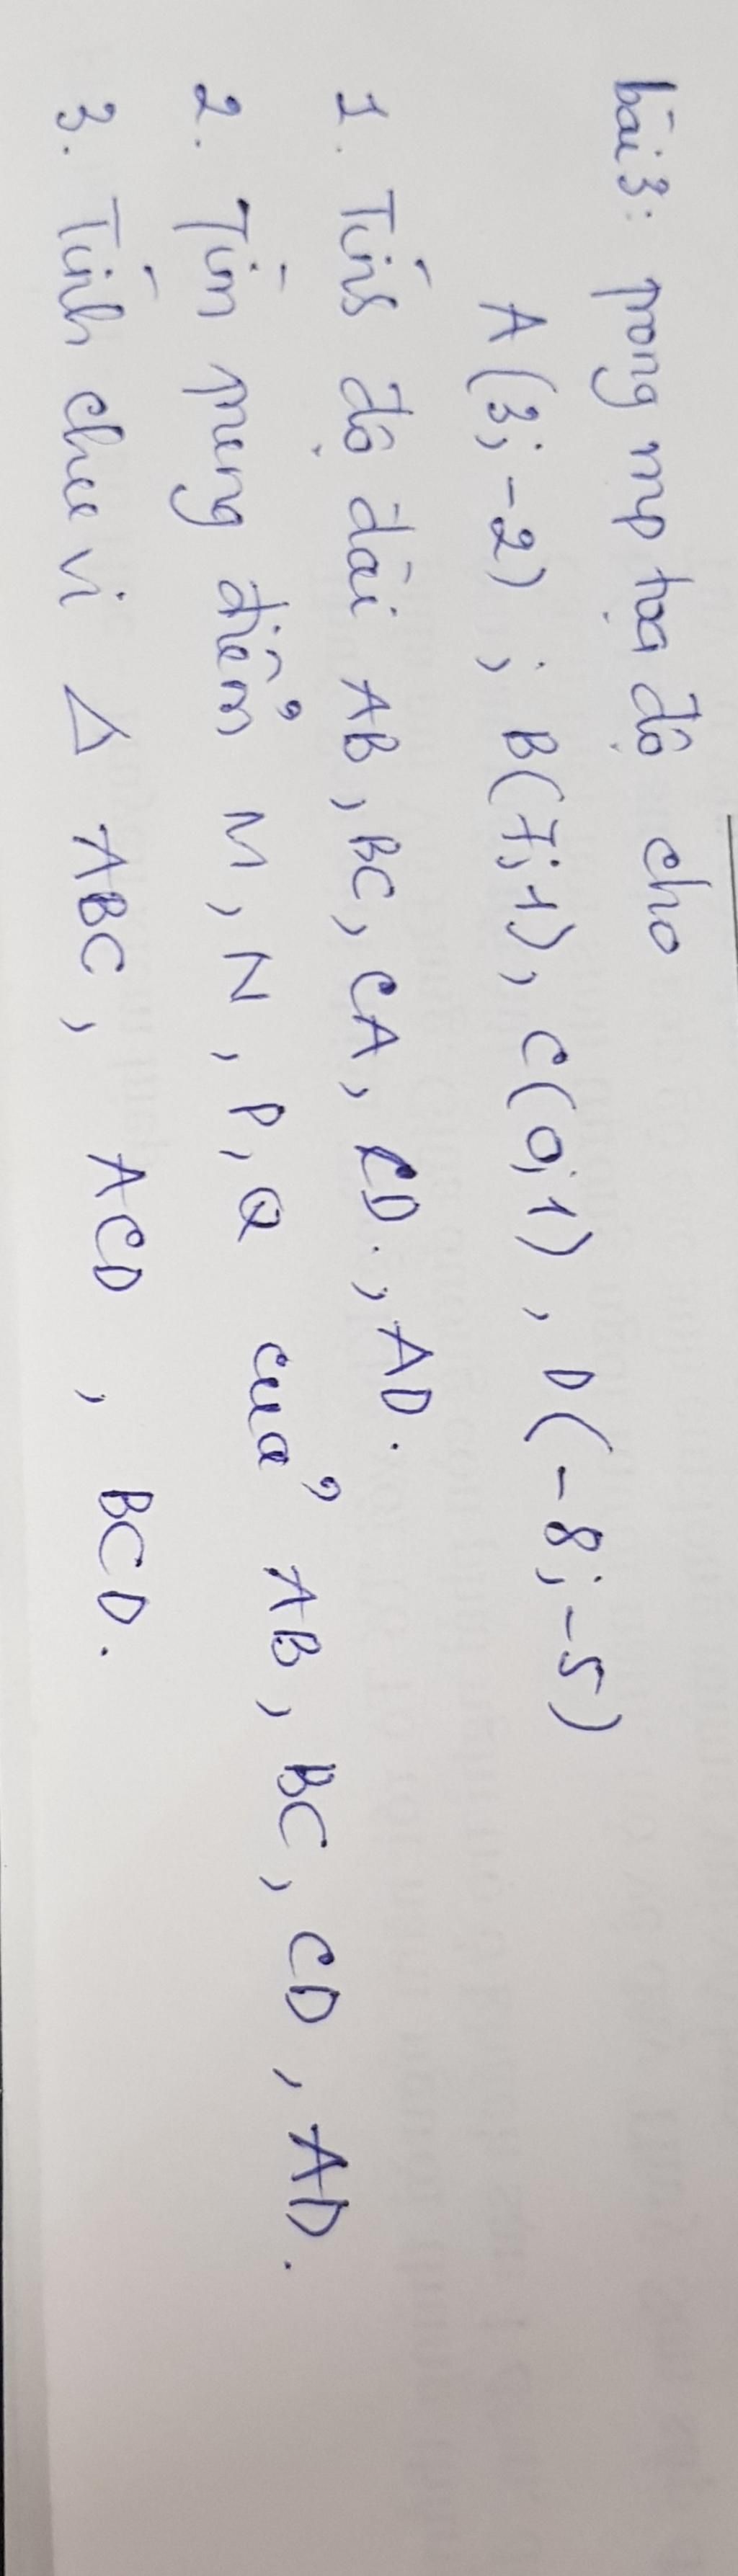 bài 3: Trong mp tọa độ cho
A(3;-2) ; B(7;1), C(0;1) , D(-8;-5)
1. Tính độ dài AB, BC, CA, CD., AD.
2. Tìm trung điểm M, N, P, Q của AB, BC, CD, AD.
3. Tính chu vi Δ ABC, ACD , BCD.